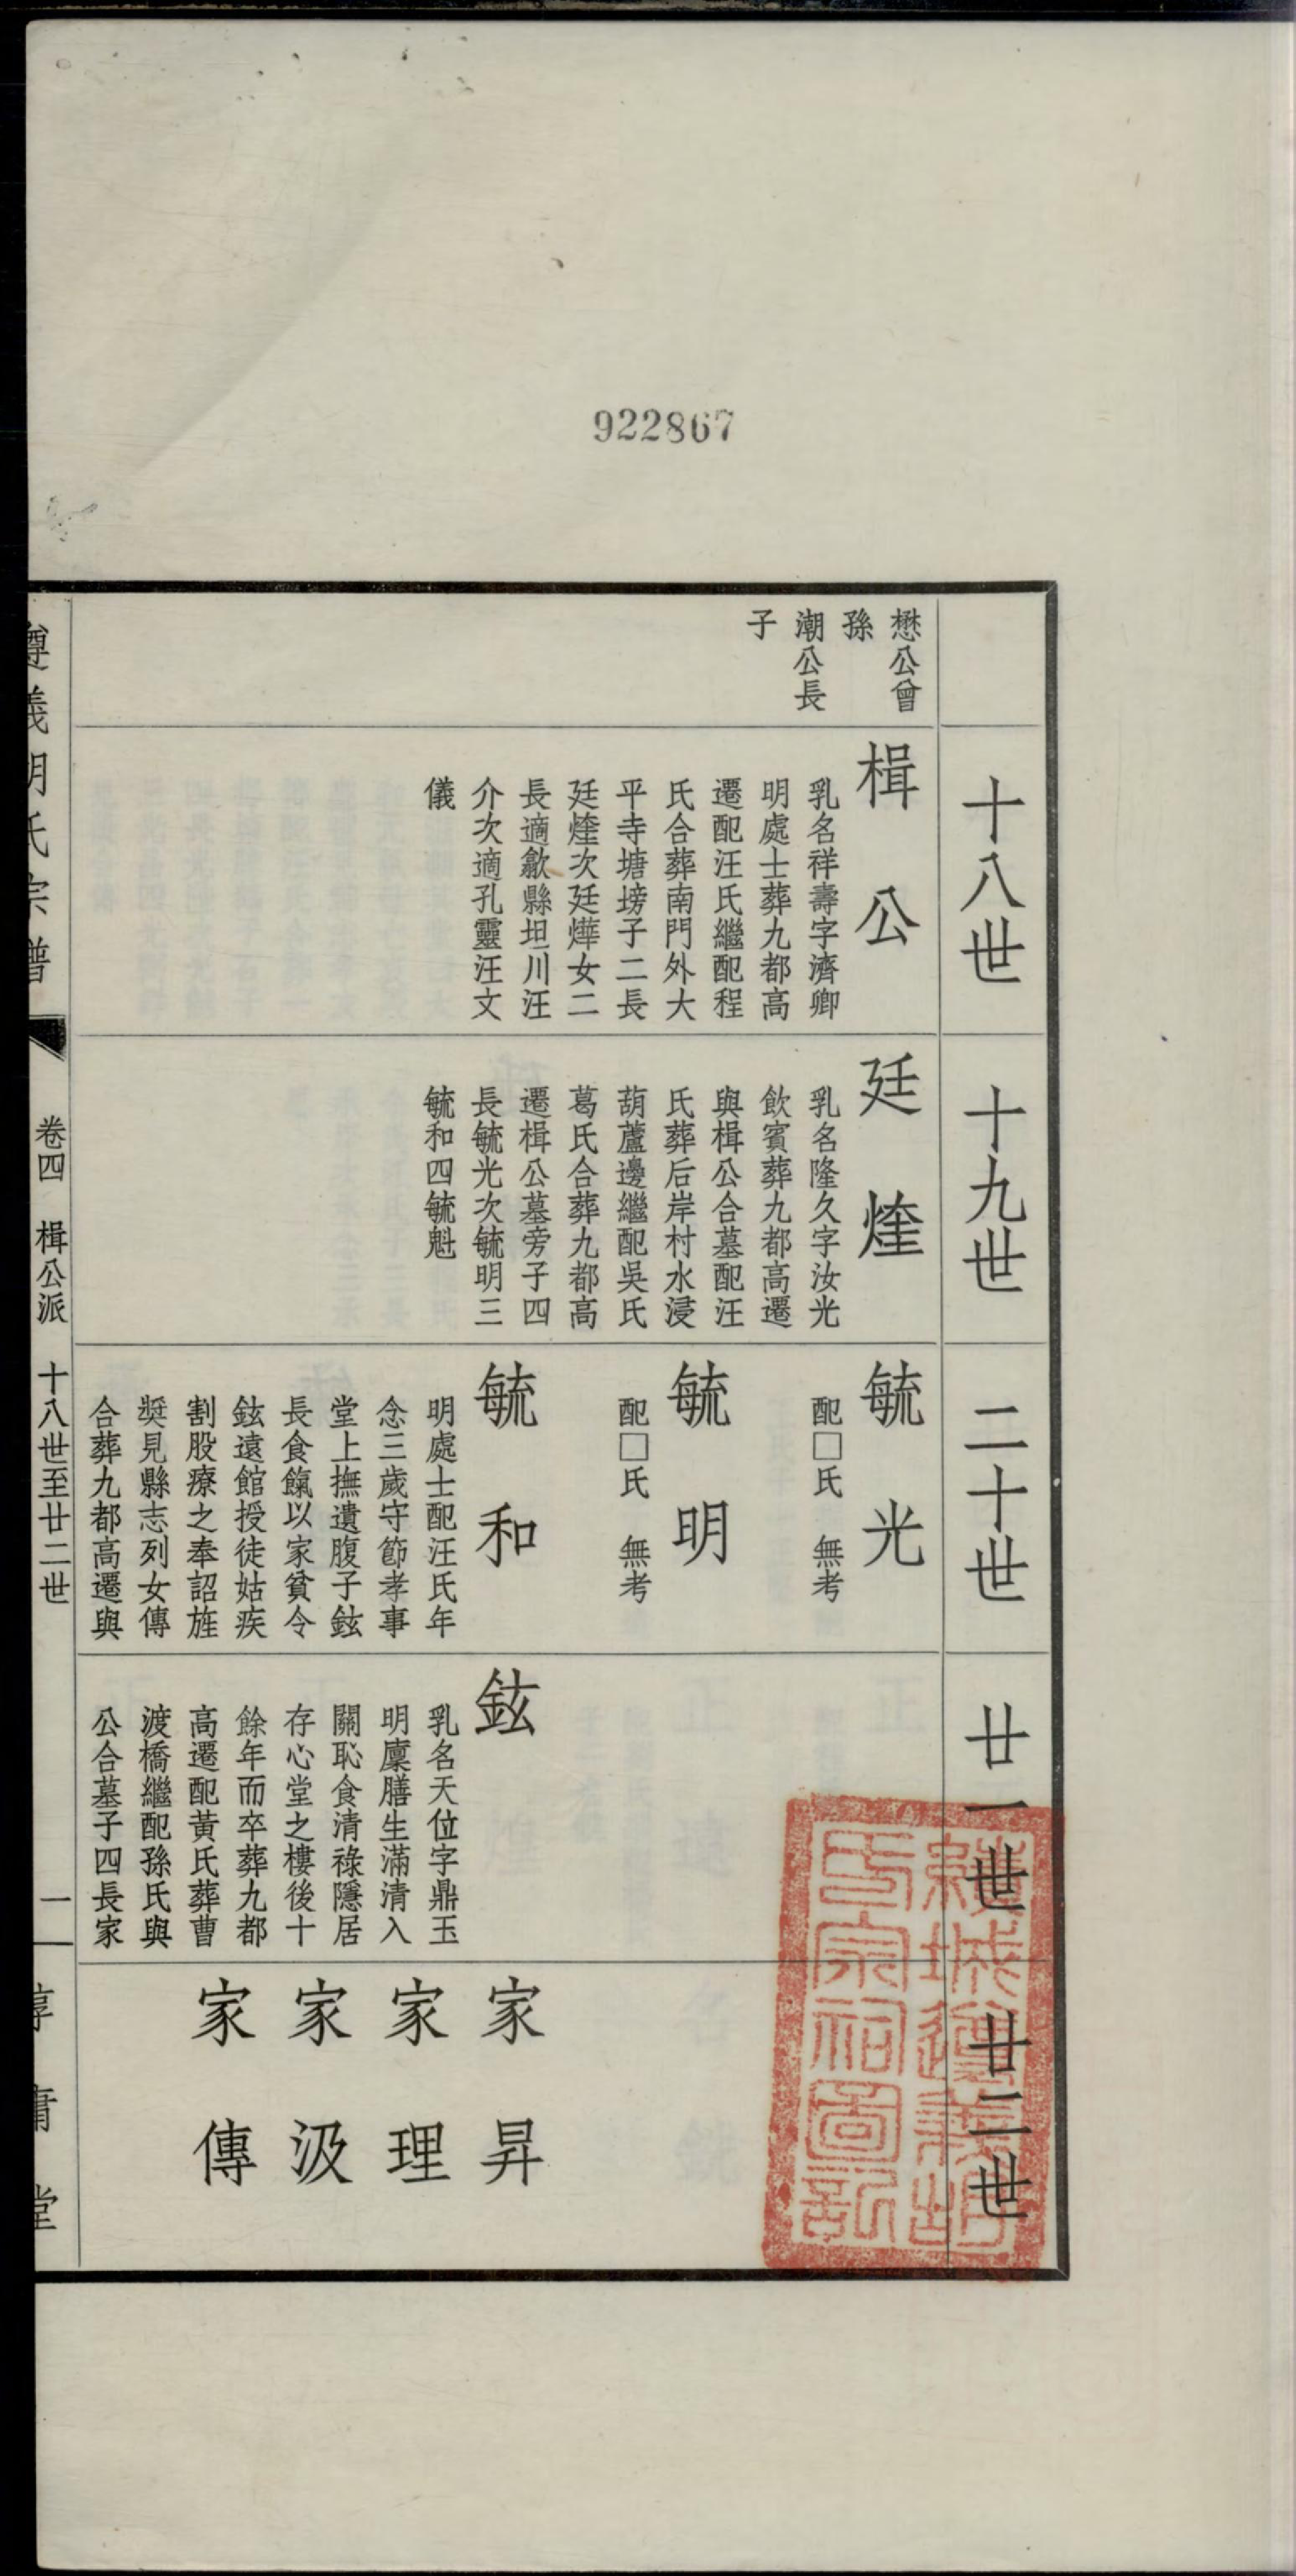 922867
十八世
十九世
二十世
廿一世
廿二世
懋公曾
孫
潮公長
子
楫公
乳名祥壽字濟卿
明處士葬九都高
遷配汪氏繼配程
氏合葬南門外大
平寺塘塝子二長
廷煃次廷燁女二
長適歙縣坦川汪
介次適孔靈汪文
儀
廷煃
乳名隆久字汝光
飲賓葬九都高遷
與楫公合墓配汪
氏葬后岸村水浸
葫蘆邊繼配吳氏
葛氏合葬九都高
遷楫公墓旁子四
長毓光次毓明三
毓和四毓魁
毓光
配□氏 無考
毓明
配□氏 無考
毓和
明處士配汪氏年
念三歲守節孝事
堂上撫遺腹子鉉
長食餼以家貧令
鉉遠館授徒姑疾
割股療之奉詔旌
奬見縣志列女傳
合葬九都高遷與
鉉
乳名天位字鼎玉
明廩膳生滿清入
關恥食清祿隱居
存心堂之樓後十
餘年而卒葬九都
高遷配黃氏葬曹
渡橋繼配孫氏與
公合墓子四長家
家昇
家理
家汲
家傳
遵義胡氏宗譜 卷四 楫公派 十八世至廿二世 一 惇庸堂
績城遵義胡
氏宗祠圖記